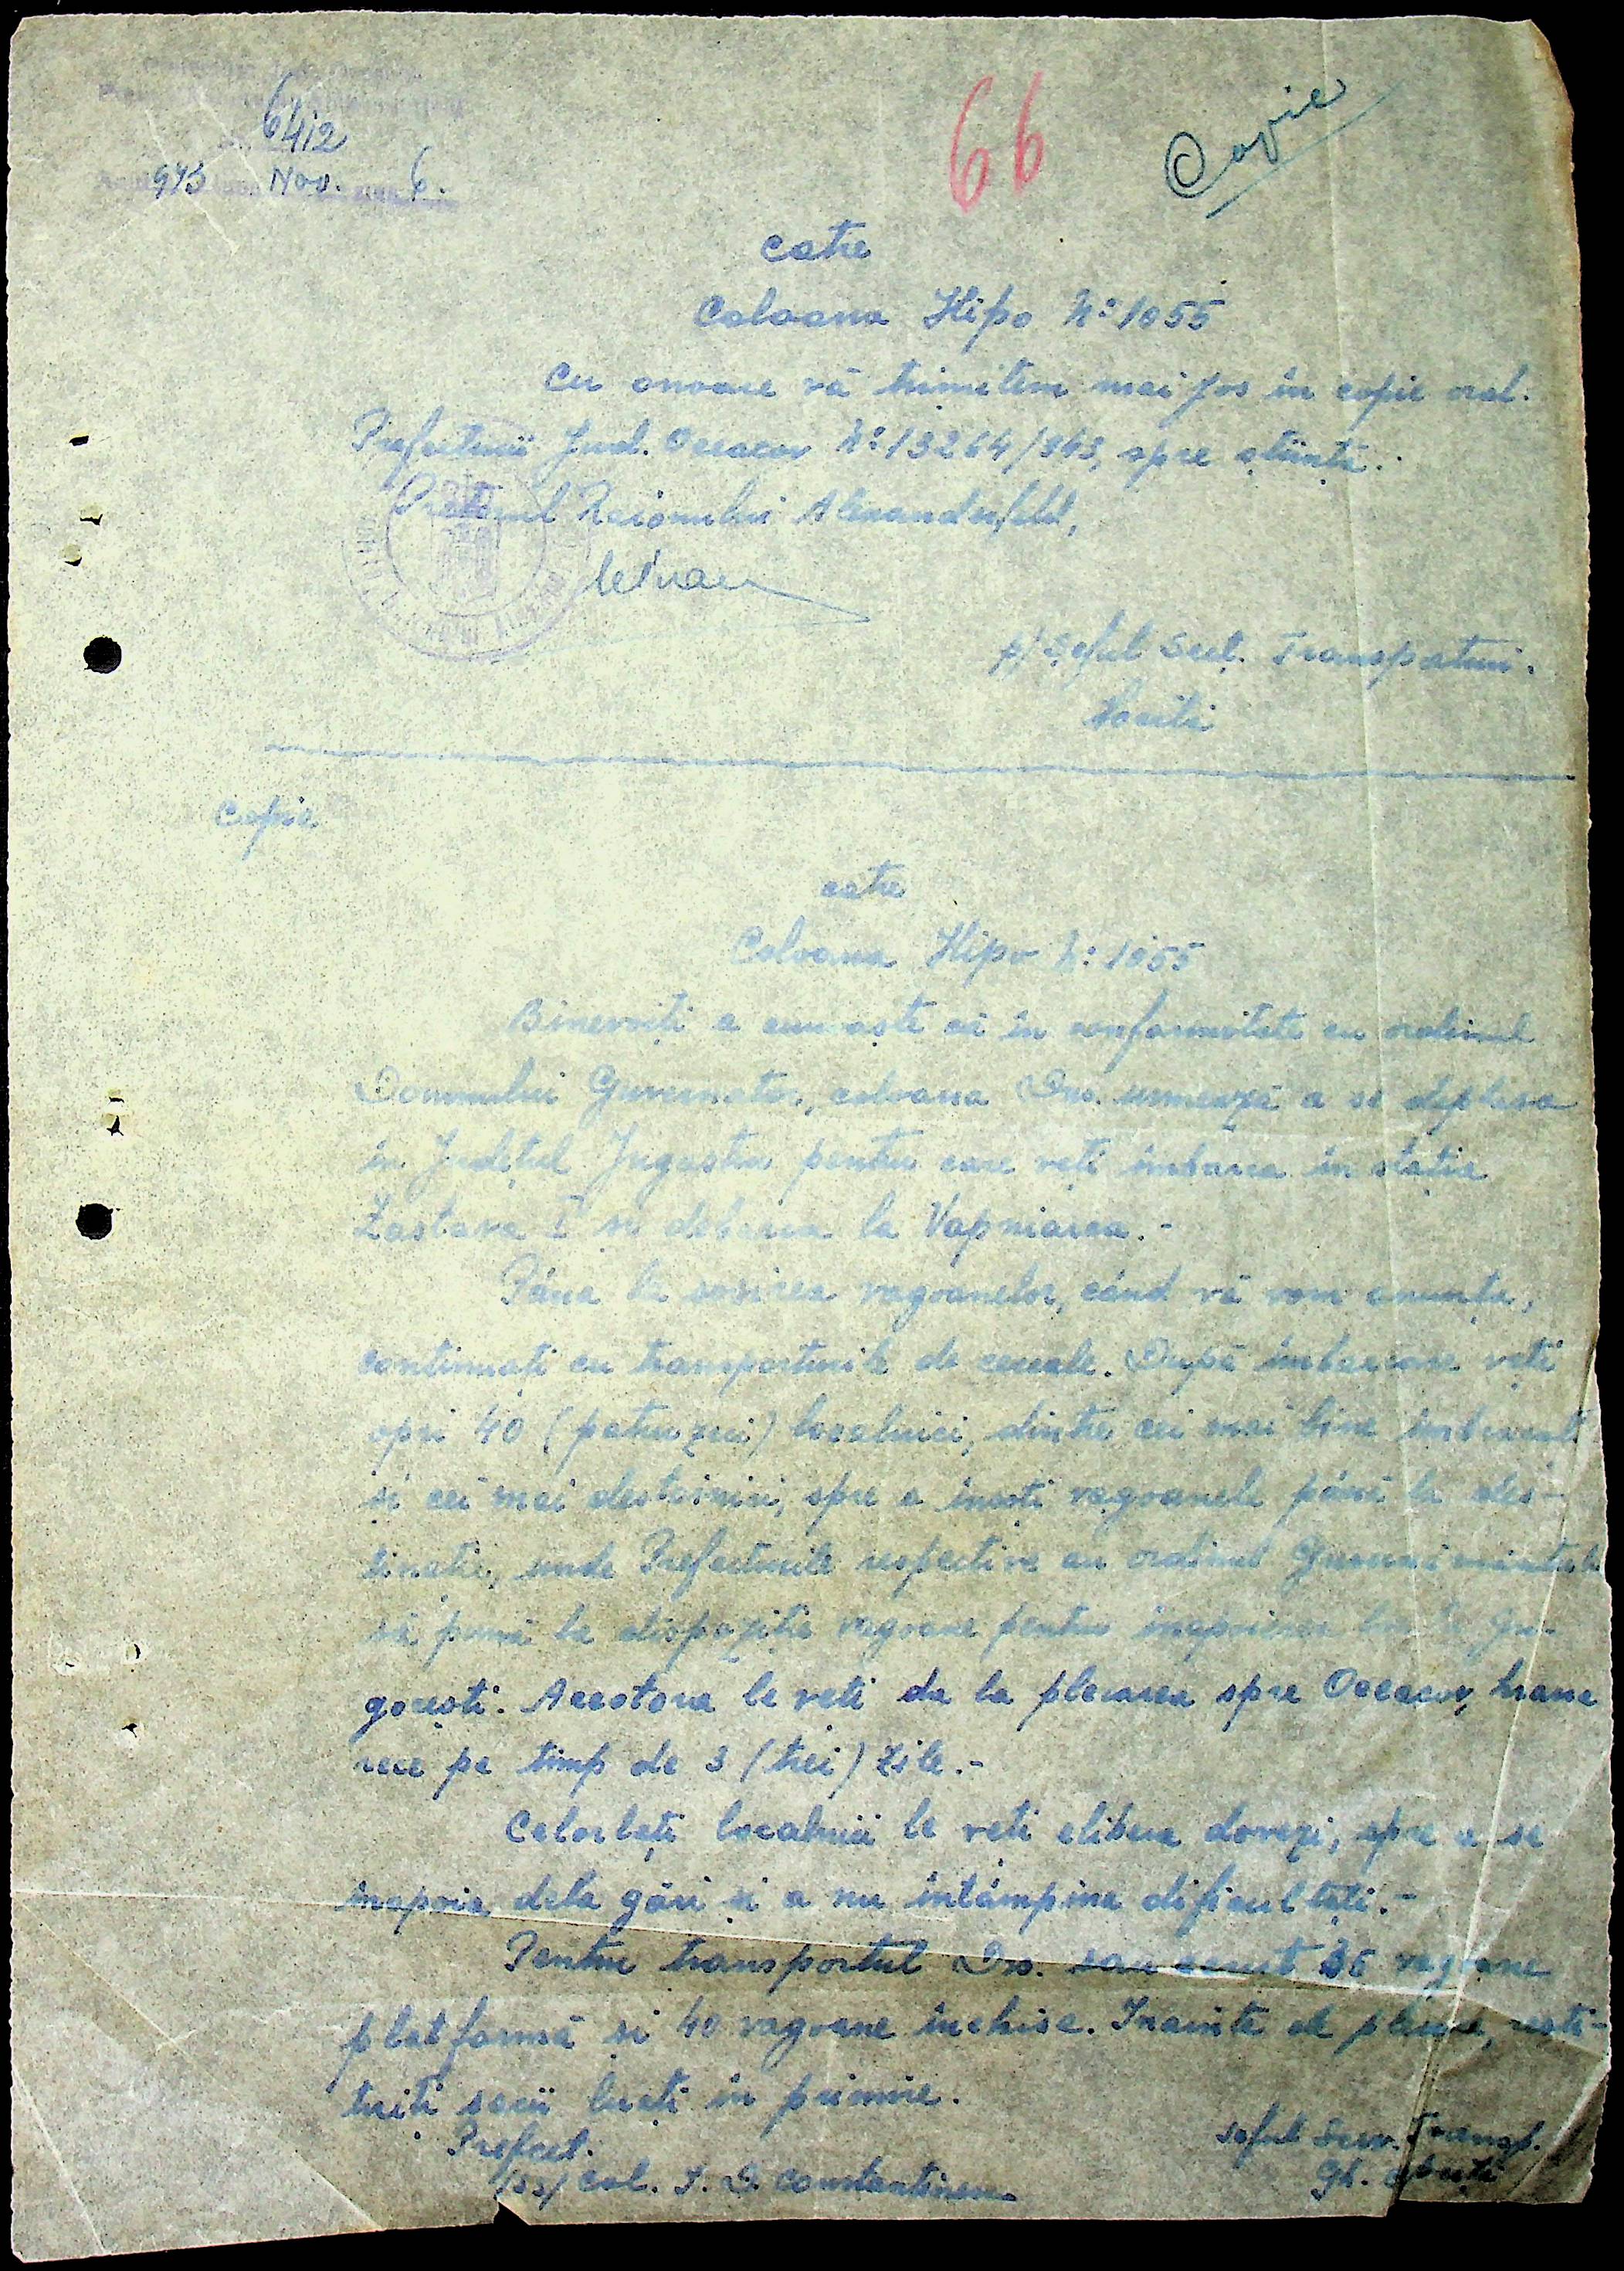 6412
943 Nov. 6.
66
Copie
catre
Coloana Hipo No 1055
Cu onoare vă trimitem mai jos în copie ord.
Prefecturii Jud. Oceacov No 13264/943, spre știință.
Pretorul Raionului Alexanderfeld,
p/ Șeful Secț. Transporturi.
Copie
catre
Coloana Hipo No 1055
Binevoiți a cunoaște că în conformitate cu ordinul
Domnului Guvernator, coloana Dvs. urmează a se deplasa
în Județul Jugastru pentru care veți îmbarca în stația
Zastava I și debarca la Vapniarca.-
Până la sosirea vagoanelor, când vă vom anunța,
continuați cu transporturile de cereale. După îmbarcare veți
opri 40 (patruzeci) localnici, dintre cei mai bine îmbracati
și cei mai destoinici, spre a însoți vagoanele până la des-
tinație, unde Prefecturile respective au ordinul Guvernământului
să pună la dispoziție vagoane pentru inapoierea lor la
Acestora le veti da la plecarea spre Oceacov, hrana
rece pe timp de 3 (trei) zile.-
Celorlați localnici le veti elibera dovezi, spre a se
inapoia dela gări și a nu întâmpina dificultăți.-
Pentru transportul Dvs. sau cerut 36 vagoane
platformă și 40 vagoane închise. Inainte de plecare, resti-
tuiti sacii luați în primire.
Prefect.
/ss/ Col. I. D. Constantinescu
seful Serv. Transp.
Gh.